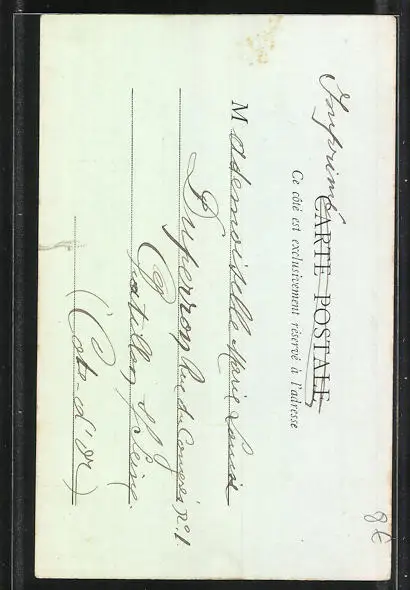 Imprimé
CARTE POSTALE
Ce côté est exclusivement réservé à l'adresse
Mademoiselle Marie Louise
Duperron Rue du Congrès No. 1
Chatillon s/ Seine
(Côte-d'Or)
8£